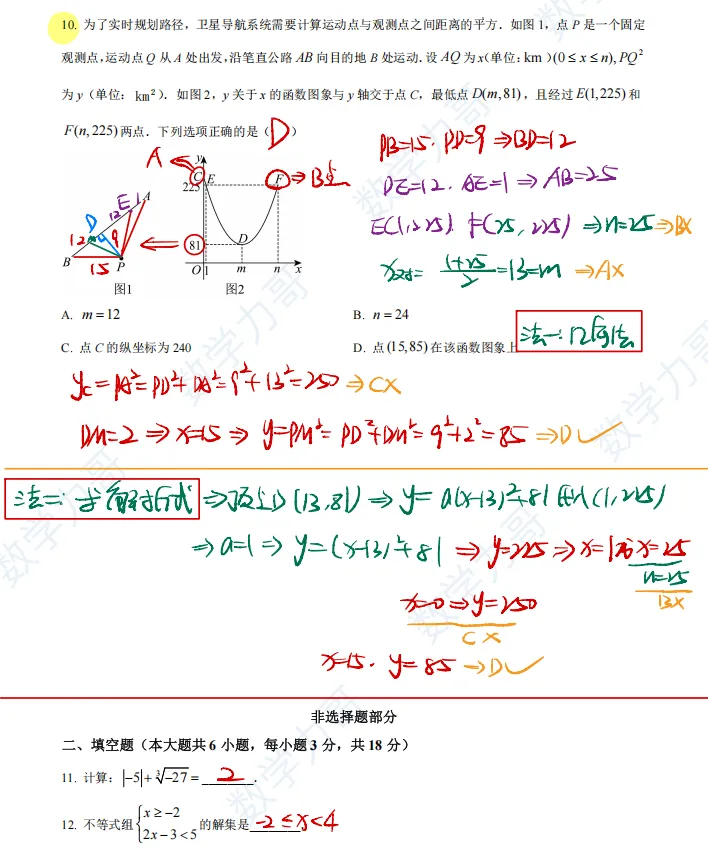 10. 为了实时规划路径，卫星导航系统需要计算运动点与观测点之间距离的平方．如图 1，点 P 是一个固定
观测点，运动点 Q 从 A 处出发，沿笔直公路 AB 向目的地 B 处运动．设 AQ 为 x（单位：km）(0≤x≤n)，PQ²
为 y（单位：km²）．如图 2，y 关于 x 的函数图象与 y 轴交于点 C，最低点 D(m,81)，且经过 E(1,225) 和
F(n,225) 两点．下列选项正确的是（D）
PB=15. PD=9 ⇒BD=12
DE=12. AE=1 ⇒ AB=25
E(1,225). F(25, 225) ⇒n=25 ⇒B×
x对= (1+25)/2 =13=m ⇒A×
A
y
C E F ⇒ B点
225
81
D
O 1 m n x
图2
E 1 A
D 12
12 m 9
B 15 P
图1
A. m=12
B. n=24
C. 点 C 的纵坐标为 240
D. 点(15,85)在该函数图象上
法一: 几何法
yc=PA²=PD²+DA²=9²+13²=250 ⇒C×
DM=2 ⇒x=15 ⇒ y=PM²=PD²+DM²=9²+2²=85 ⇒D✓
法二: 求解析式 ⇒顶点D(13,81) ⇒ y=a(x-13)²+81 代入(1,225)
⇒a=1 ⇒ y=(x-13)²+81 ⇒ y=225 ⇒x=1或x=25
n=25
B×
x=0 ⇒y=250
C×
x=15. y=85 ⇒D✓
非选择题部分
二、填空题（本大题共 6 小题，每小题 3 分，共 18 分）
11. 计算：|−5|+∛−27= 2 ．
12. 不等式组{x≥−2 2x−3<5 的解集是 -2≤x<4
数学力哥
数学力哥
数学力哥
数学力哥
数学力哥
数学力哥
数学力哥